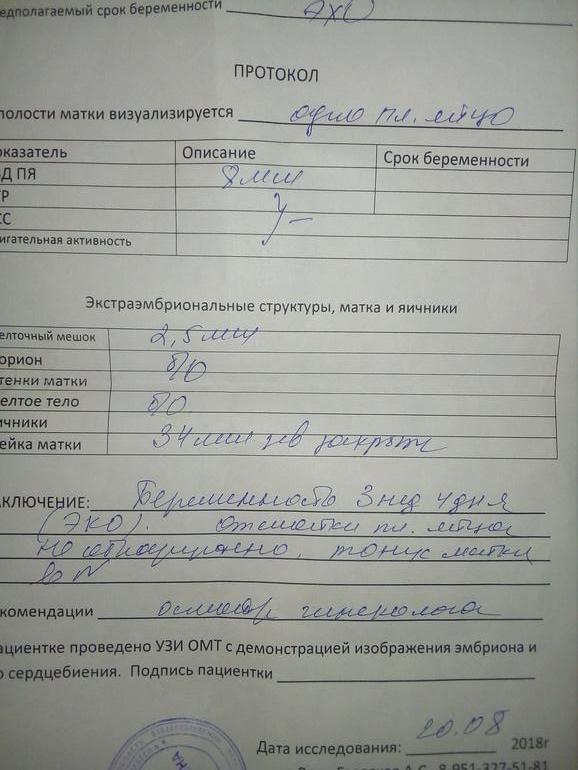 едполагаемый срок беременности ЭКО
ПРОТОКОЛ
полости матки визуализируется одно пл. яйцо
оказатель Описание Срок беременности
Д ПЯ 8 мм
Р
СС
игательная активность
Экстраэмбриональные структуры, матка и яичники
елточный мешок 2,5 мм
орион б/о
тенки матки
елтое тело б/о
ичники
ейка матки 34 мм зев закрыт
АКЛЮЧЕНИЕ: Беременность 3 нед 4 дня
(ЭКО). Отслойки пл. яйца
не обнаружено, тонус матки
в N
комендации осмотр гинеколога
ациентке проведено УЗИ ОМТ с демонстрацией изображения эмбриона и
о сердцебиения. Подпись пациентки
Дата исследования: 20.08 2018г
8-951-327-51-81